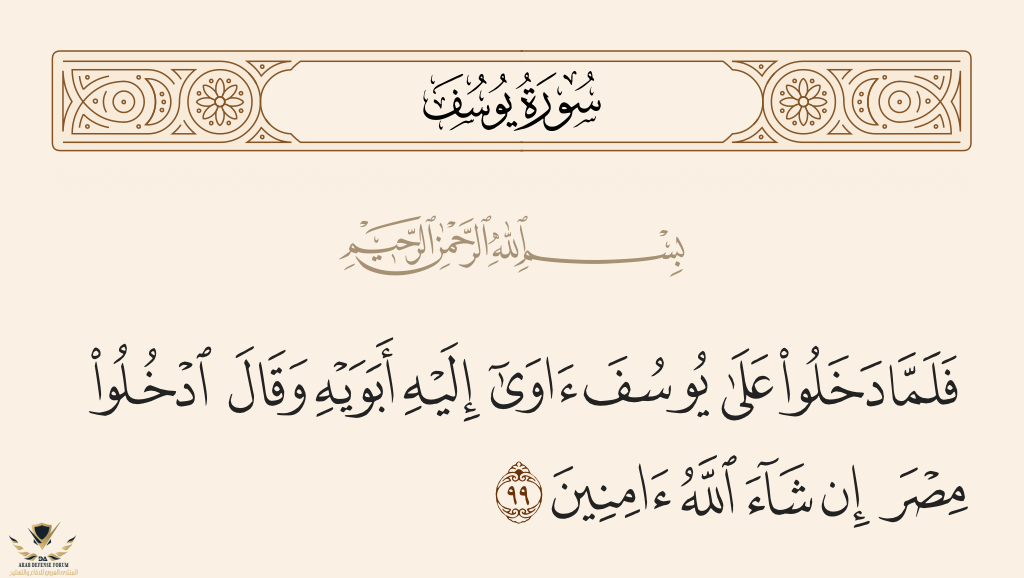 سُورَةُ يُوسُفَ
بِسْمِ ٱللَّهِ ٱلرَّحْمَٰنِ ٱلرَّحِيمِ
فَلَمَّا دَخَلُوا۟ عَلَىٰ يُوسُفَ ءَاوَىٰٓ إِلَيْهِ أَبَوَيْهِ وَقَالَ ٱدْخُلُوا۟
مِصْرَ إِن شَآءَ ٱللَّهُ ءَامِنِينَ ٩٩
DA
ARAB DEFENSE FORUM
المنتدى العربي للدفاع والتسليح